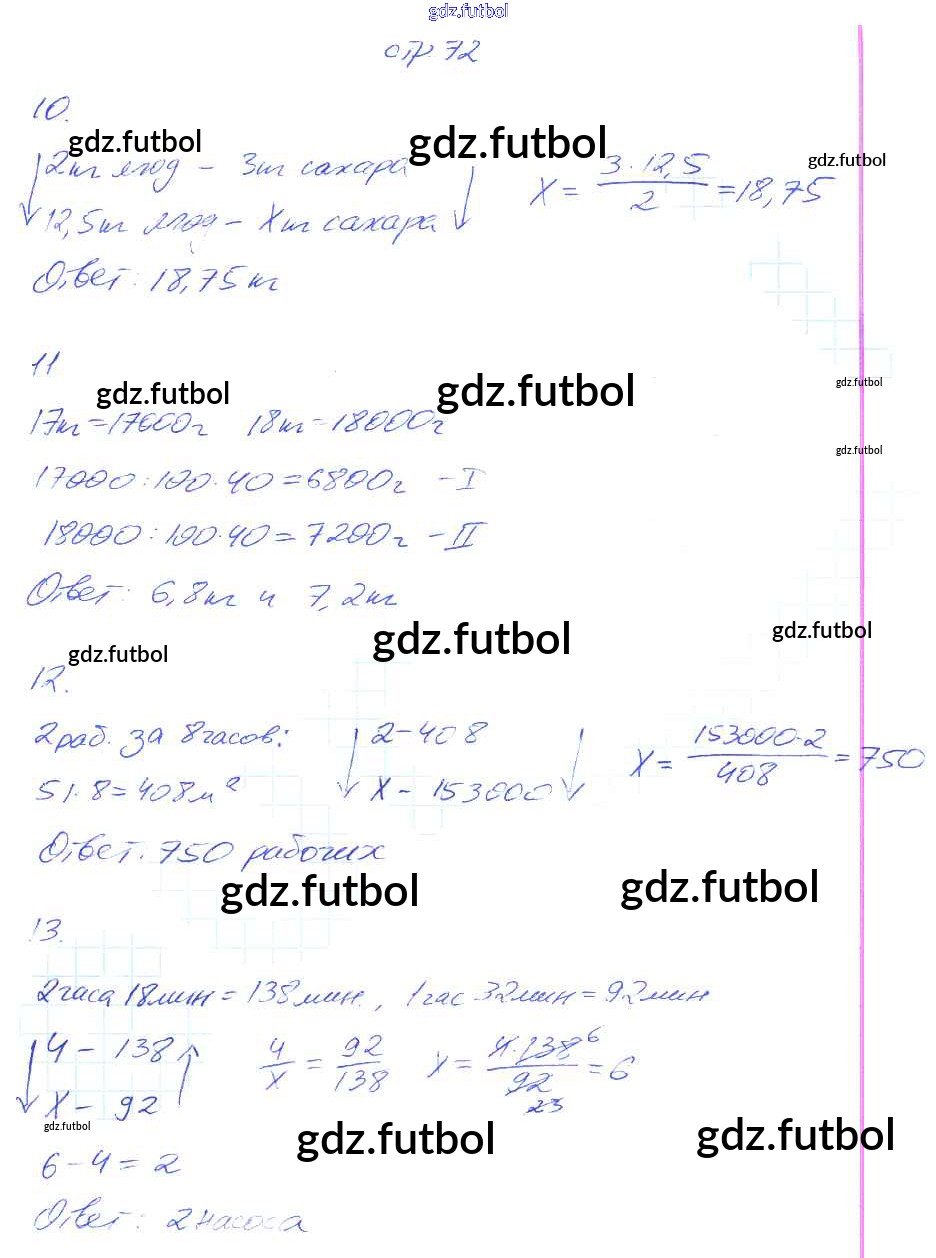 gdz.futbol
стр. 72
10.
gdz.futbol gdz.futbol gdz.futbol
2кг ягод - 3кг сахара x = 3·12,5/2 = 18,75
12,5кг ягод - Xкг сахара
Ответ: 18,75кг
11
gdz.futbol gdz.futbol gdz.futbol
17кг=17000г 18кг=18000г
gdz.futbol
17000:100·40=6800г - I
18000:100·40=7200г - II
Ответ: 6,8кг и 7,2кг
gdz.futbol gdz.futbol gdz.futbol
12.
2раб. за 8часов: 2-408 x = 153000·2/408 = 750
51·8=408м² X - 153000
Ответ. 750 рабочих
gdz.futbol gdz.futbol
13.
2часа 18мин = 138мин, 1час 32мин = 92мин
4 - 138 4/x = 92/138 x = 4·138 6/92 23 = 6
X - 92
gdz.futbol gdz.futbol gdz.futbol
6-4=2
Ответ: 2насоса